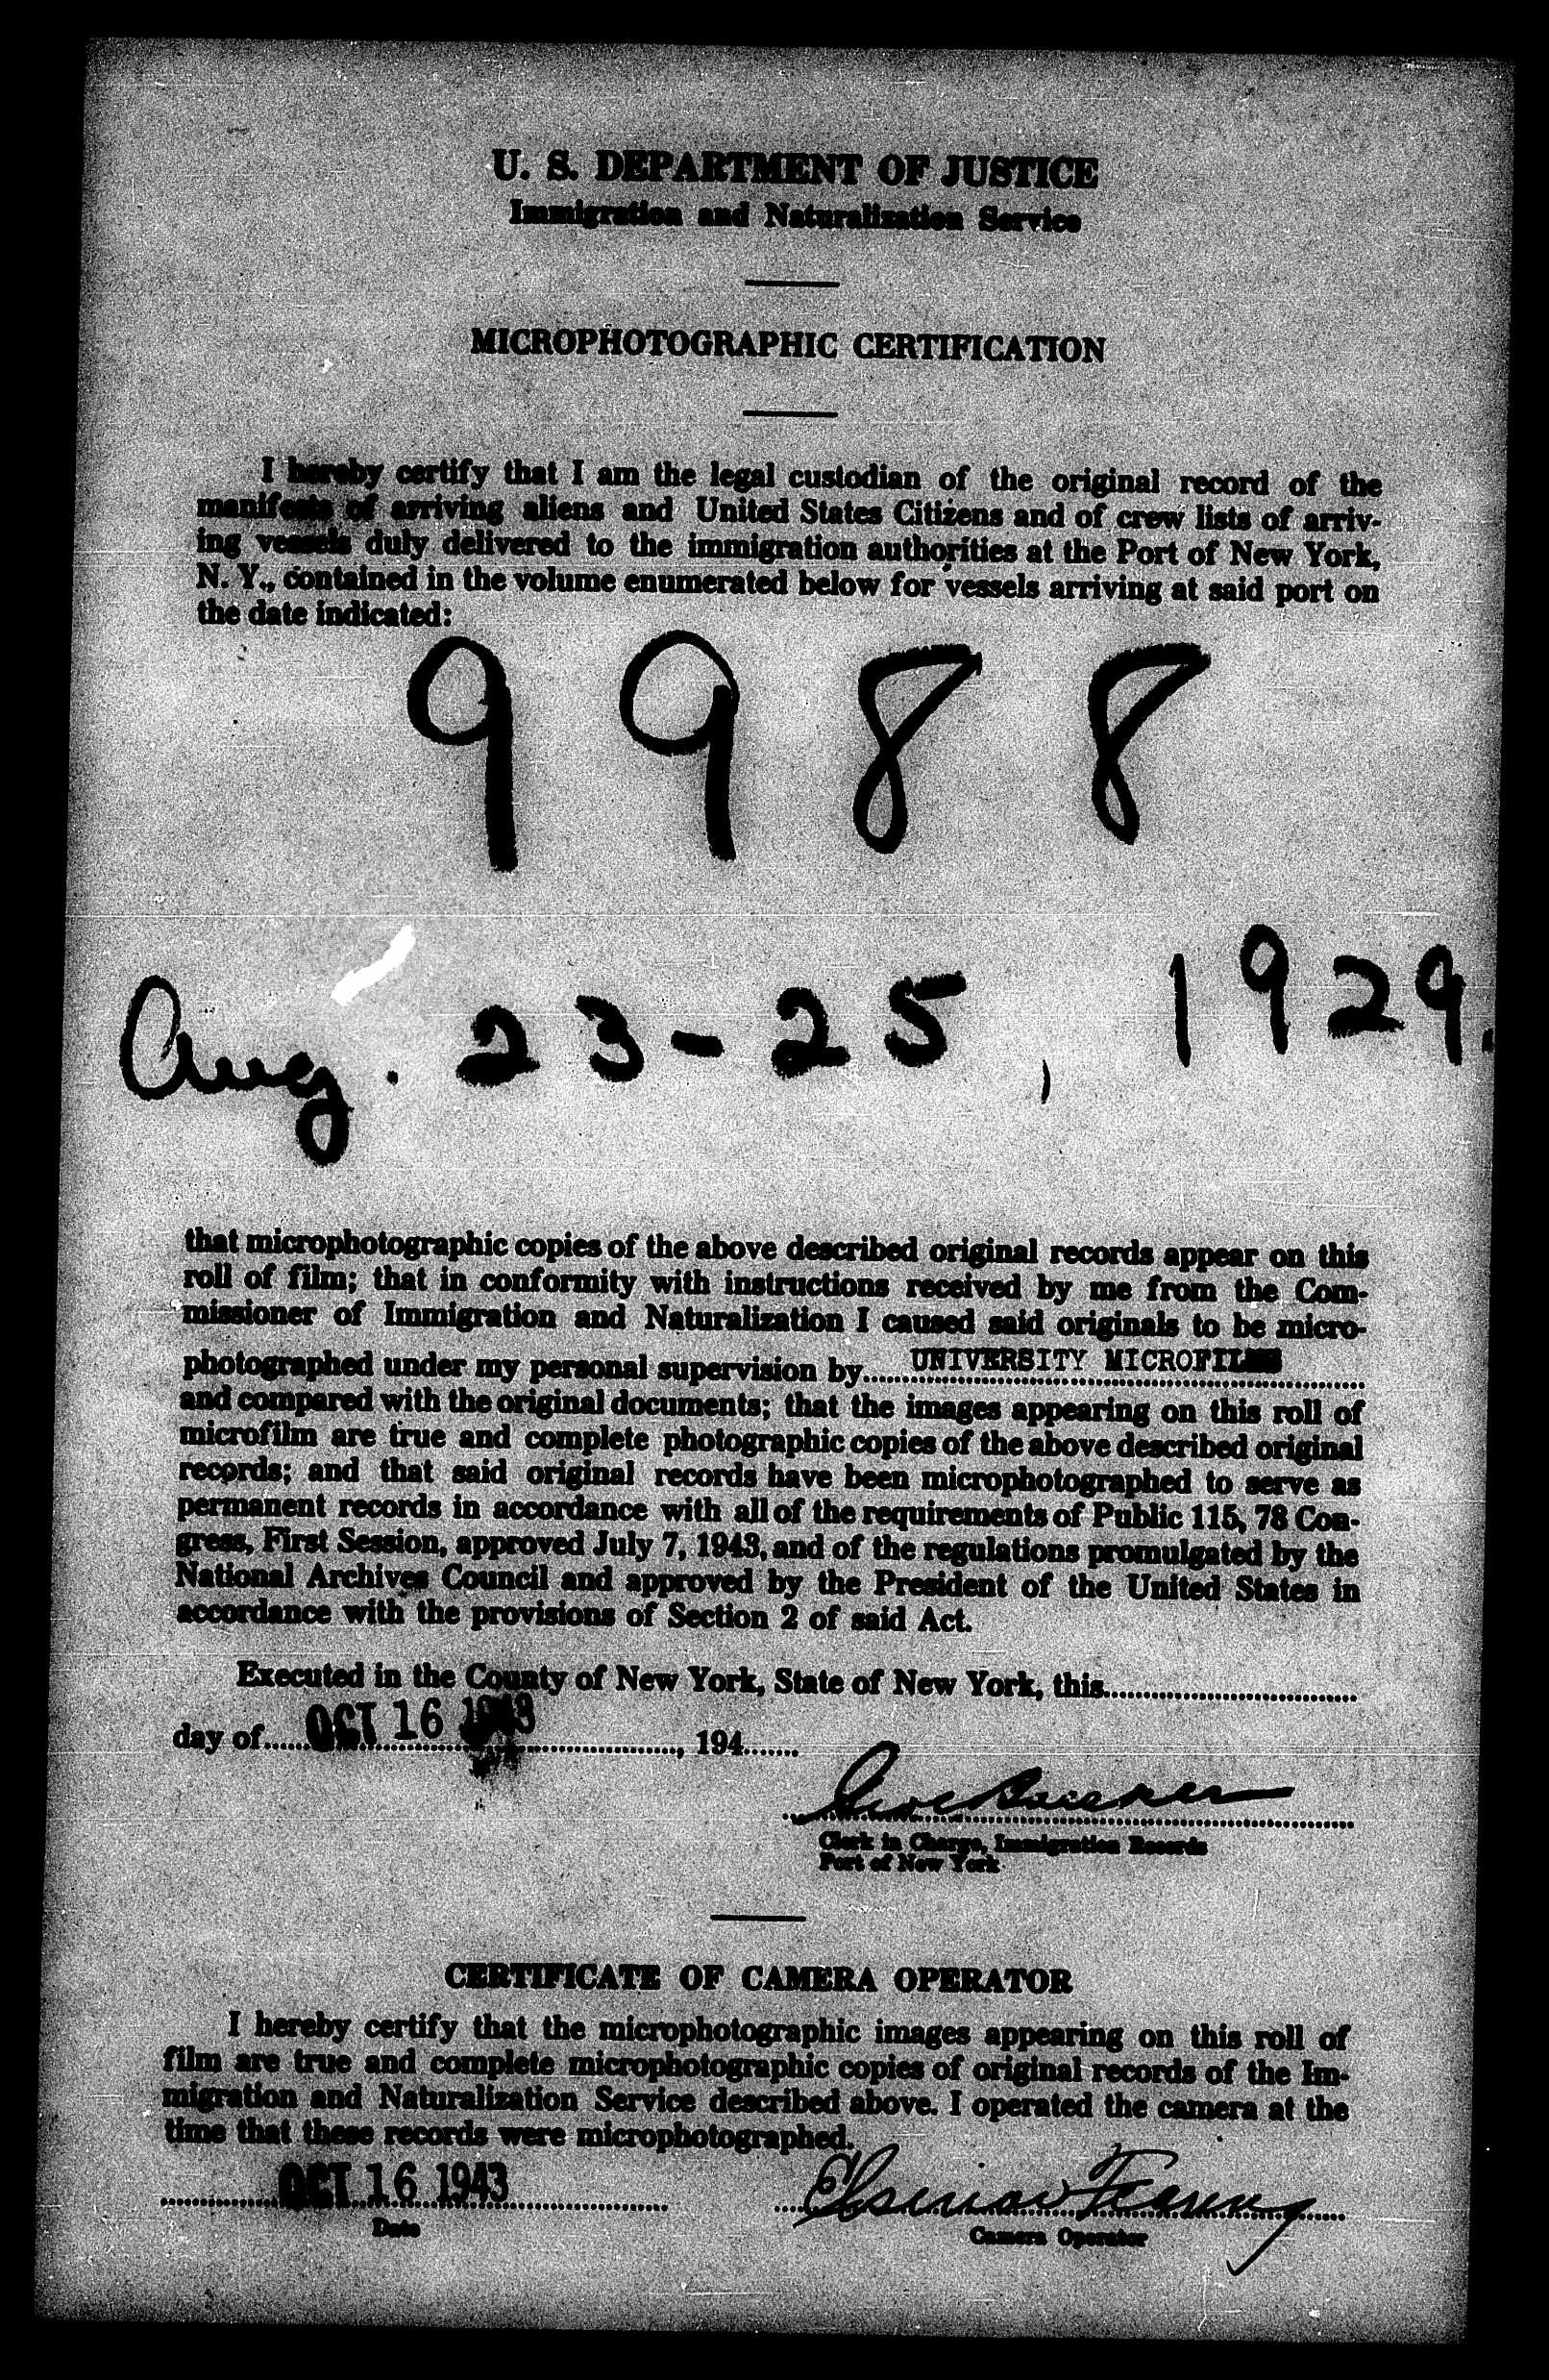 U. S. DEPARTMENT OF JUSTICE
Immigration and Naturalization Service
MICROPHOTOGRAPHIC CERTIFICATION
I hereby certify that I am the legal custodian of the original record of the
manifests of arriving aliens and United States Citizens and of crew lists of arriv-
ing vessels duly delivered to the immigration authorities at the Port of New York,
N. Y., contained in the volume enumerated below for vessels arriving at said port on
the date indicated:
9988
Aug. 23-25, 1929.
that microphotographic copies of the above described original records appear on this
roll of film; that in conformity with instructions received by me from the Com-
missioner of Immigration and Naturalization I caused said originals to be micro-
photographed under my personal supervision by UNIVERSITY MICROFILMS
and compared with the original documents; that the images appearing on this roll of
microfilm are true and complete photographic copies of the above described original
records; and that said original records have been microphotographed to serve as
permanent records in accordance with all of the requirements of Public 115, 78 Con-
gress, First Session, approved July 7, 1943, and of the regulations promulgated by the
National Archives Council and approved by the President of the United States in
accordance with the provisions of Section 2 of said Act.
Executed in the County of New York, State of New York, this
day of OCT 16 1943, 194
Clerk in Charge, Immigration Records
Port of New York
CERTIFICATE OF CAMERA OPERATOR
I hereby certify that the microphotographic images appearing on this roll of
film are true and complete microphotographic copies of original records of the Im-
migration and Naturalization Service described above. I operated the camera at the
time that these records were microphotographed.
OCT 16 1943
Date
Camera Operator